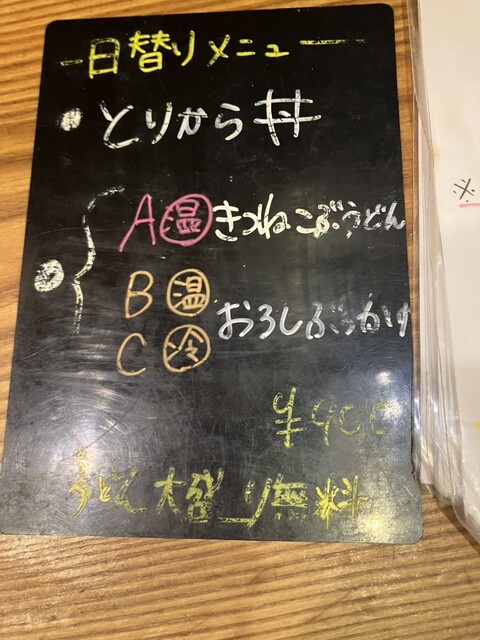 日替りメニュー
• とりから丼
A 温 きつねこぶうどん
B 温
C 冷 おろしぶっかけ
¥900
うどん大盛り無料
※